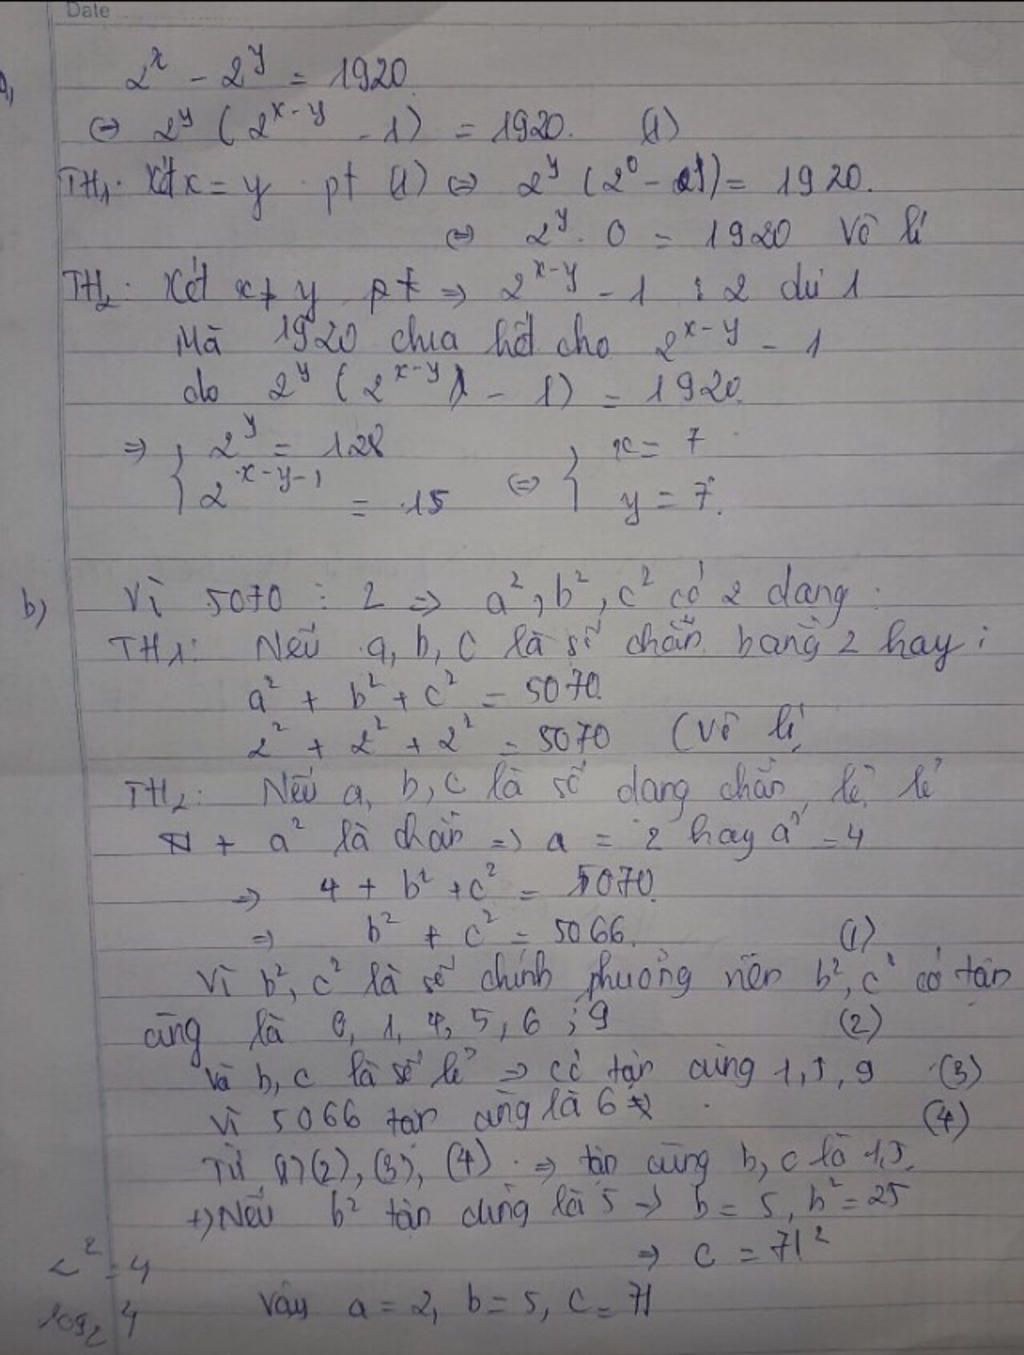 Date
2^x - 2^y = 1920
⇔ 2^y (2^{x-y} - 1) = 1920. (1)
TH1: Xét x = y pt (1) ⇔ 2^y (2^0 - 1) = 1920.
⇔ 2^y . 0 = 1920 Vô lí
TH2: Xét x ≠ y pt ⇒ 2^{x-y} - 1 : 2 dư 1
Mà 1920 chia hết cho 2^{x-y} - 1
do 2^y (2^{x-y} - 1) = 1920.
⇒ { 2^y = 128 x = 7
2^{x-y-1} = 15 ⇔ { y = 7.
b) Vì 5070 ⋮ 2 ⇒ a², b², c² có 2 dạng :
TH1: Nếu a, b, c là số chẵn bằng 2 hay :
a² + b² + c² = 5070.
2² + 2² + 2² = 5070 (Vô lí
TH2: Nếu a, b, c là số dạng chẵn, lẻ, lẻ
+ a² là chẵn ⇒ a = 2 hay a² = 4
⇒ 4 + b² + c² = 5070.
⇒ b² + c² = 5066. (1)
Vì b², c² là số chính phương nên b², c² có tận
cùng là 0, 1, 4, 5, 6 ; 9 (2)
Và b, c là số lẻ ⇒ có tận cùng 1, 5, 9 (3)
Vì 5066 tận cùng là 6 (4)
Từ (1) (2), (3), (4) ⇒ tận cùng b, c là 1, 5.
+) Nếu b² tận cùng là 5 → b = 5, b² = 25
⇒ c = 71²
² = 4
Vậy a = 2, b = 5, c = 71
log₂ 4